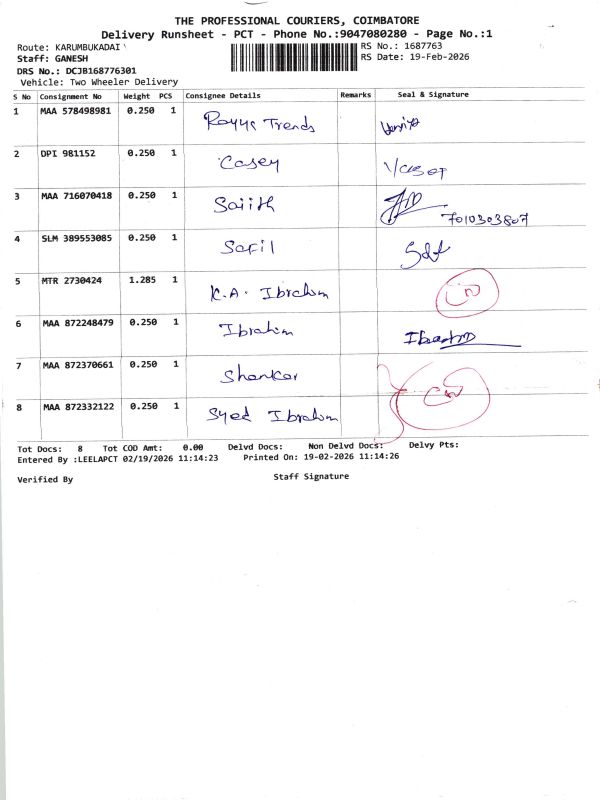 THE PROFESSIONAL COURIERS, COIMBATORE
Delivery Runsheet - PCT - Phone No.:9047080280 - Page No.:1
Route: KARUMBUKADAI
RS No.: 1687763
Staff: GANESH
RS Date: 19-Feb-2026
DRS No.: DCJB168776301
Vehicle: Two Wheeler Delivery
S No Consignment No Weight PCS Consignee Details Remarks Seal & Signature
1 MAA 578498981 0.250 1 Trends
2 DPI 981152 0.250 1 Casey
3 MAA 716070418 0.250 1 Saiith 7010303807
4 SLM 389553085 0.250 1 Safil
5 MTR 2730424 1.285 1 K.A. Ibrahim
6 MAA 872248479 0.250 1 Ibrahim
7 MAA 872370661 0.250 1 Shankar
8 MAA 872332122 0.250 1 Syed Ibrahim
Tot Docs: 8 Tot COD Amt: 0.00 Delvd Docs: Non Delvd Docs: Delvy Pts:
Entered By :LEELAPCT 02/19/2026 11:14:23 Printed On: 19-02-2026 11:14:26
Verified By Staff Signature